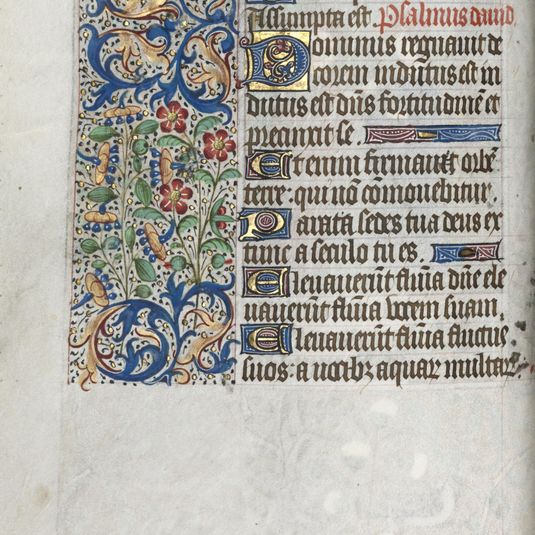 Assumpta est. Psalmus david.
Dominus regnavit de
corem indutus est in
dutus est dn̄s fortitudinē et
precinxit se.
Et enim firmavit orbē
terre: qui nō comovebitur.
Parata sedes tua deus ex
tunc a seculo tu es.
Elevaverūt flūia dn̄e ele
vaverūt flūia vocem suam.
Elevaverūt flūia fluctus
suos: a vocibꝫ aquaꝝ multaꝝ.